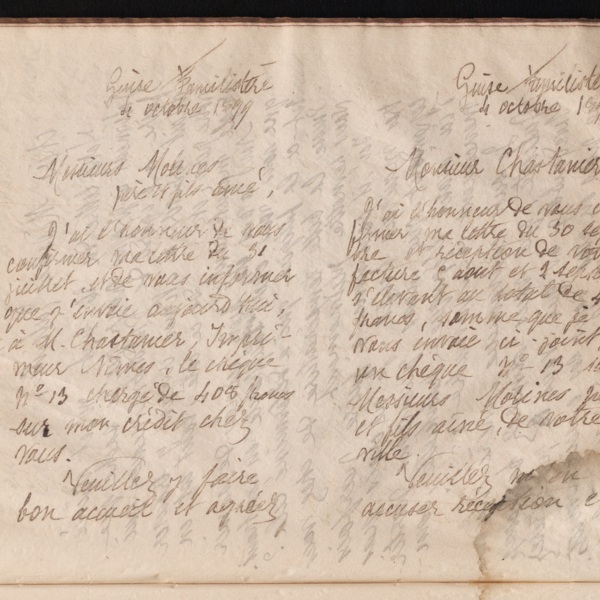 Guise Familistère
4 octobre 1899
Messieurs Molines
père et fils aîné,
J'ai l'honneur de vous
confirmer ma lettre du 31
juillet et de vous informer
que j'envoie aujourd'hui,
à M. Chastanier, Impri-
meur Nîmes, le chèque
N° 13 chargé de 408 francs
sur mon crédit chez
vous.
Veuillez y faire
bon accueil et agréez
Guise Familistè
4 octobre 18
Monsieur Chastanier
J'ai l'honneur de vous
firmer ma lettre du 30 se
bre et réception de vot
facture août et 2 sept
s'élevant au total de 4
francs, somme que je
vous envoie ci-joint
un chèque N° 13 s
Messieurs Molines p
et fils aîné, de votre
ville.
Veuillez m'en
accuser réception e